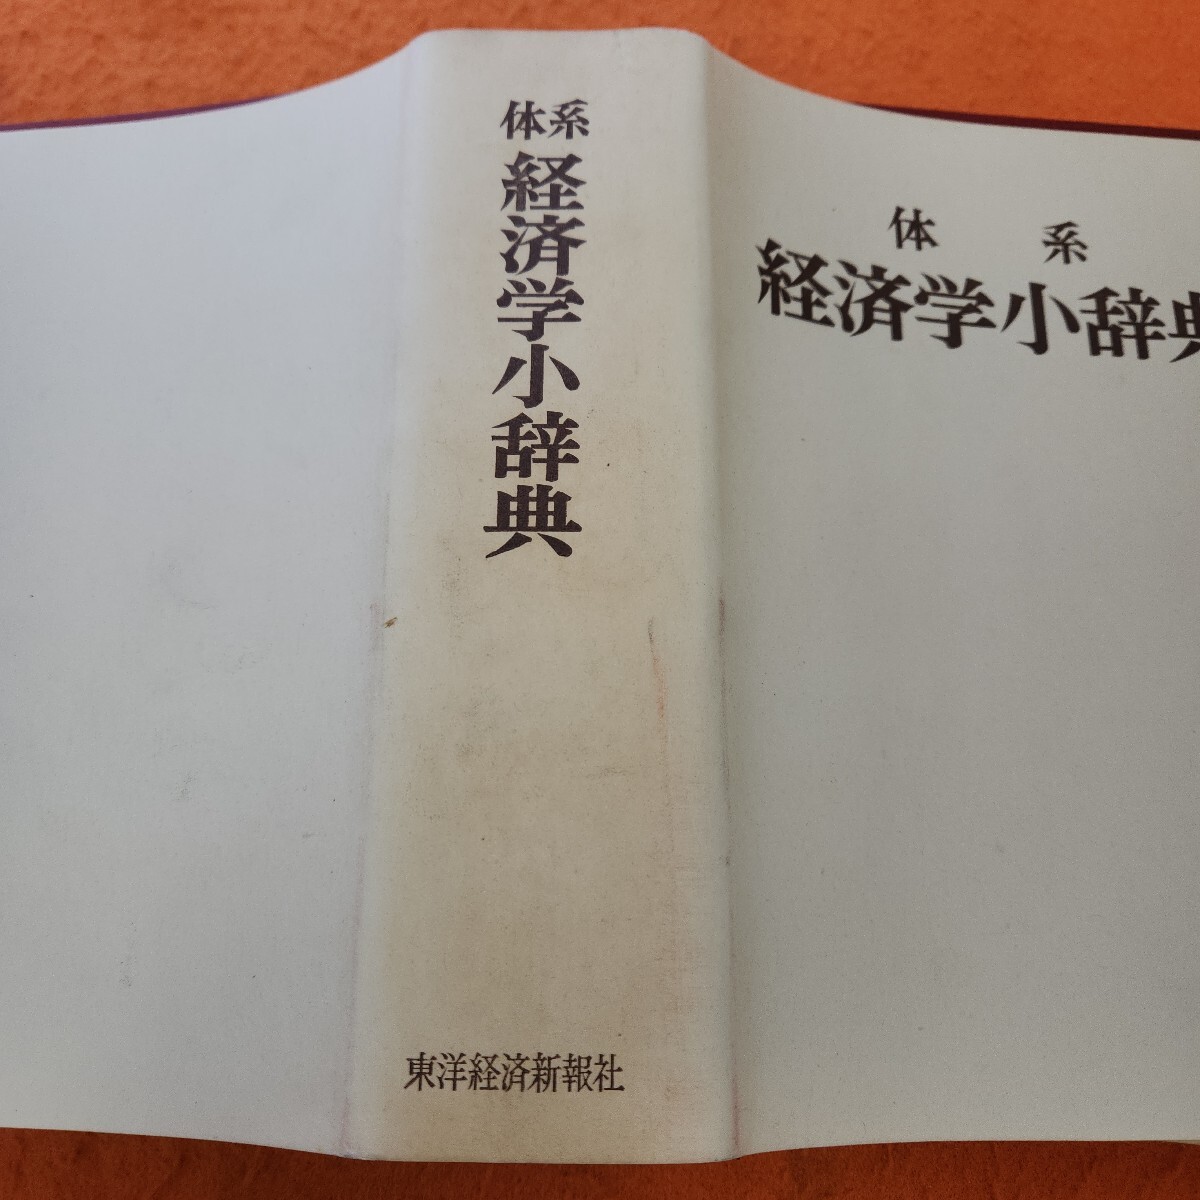 体系
経済学小辞典
東洋経済新報社
体系
経済学小辞典